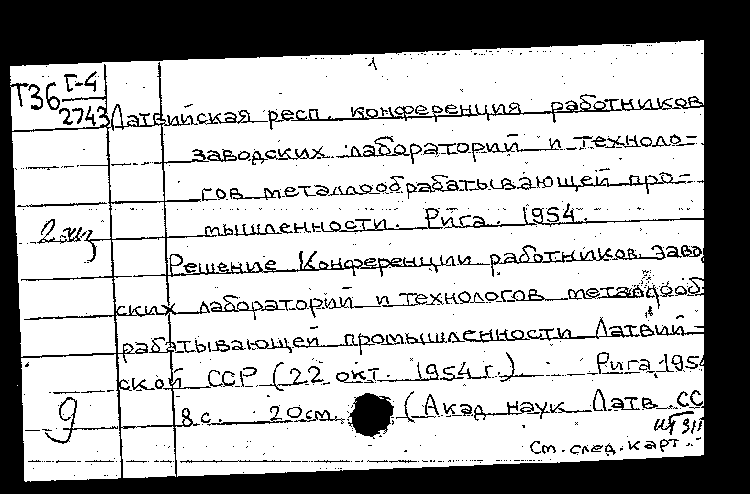 1
Т36 Г-4
2743 Латвийская респ. конференция работников
заводских лабораторий и техноло-
гов металлообрабатывающей про-
мышленности. Рига. 1954.
2 экз
Решение Конференции работников заво
ских лабораторий и технологов металлооб-
рабатывающей промышленности Латвий-
ской ССР (22 окт. 1954 г.). Рига, 1954
9
8 с. 20 см. (Акад. наук Латв. СС
См. след. карт.